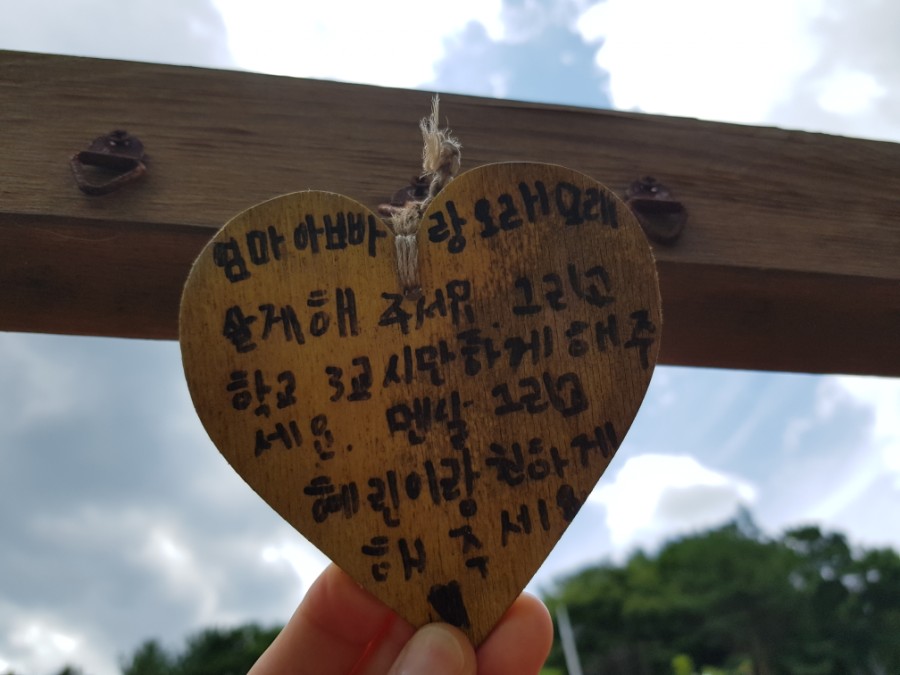 엄마 아빠랑 오래오래
살게해 주세요. 그리고
학교 3교시만하게 해주
세요. 맨날 그리고
혜린이랑 친하게
해 주세요